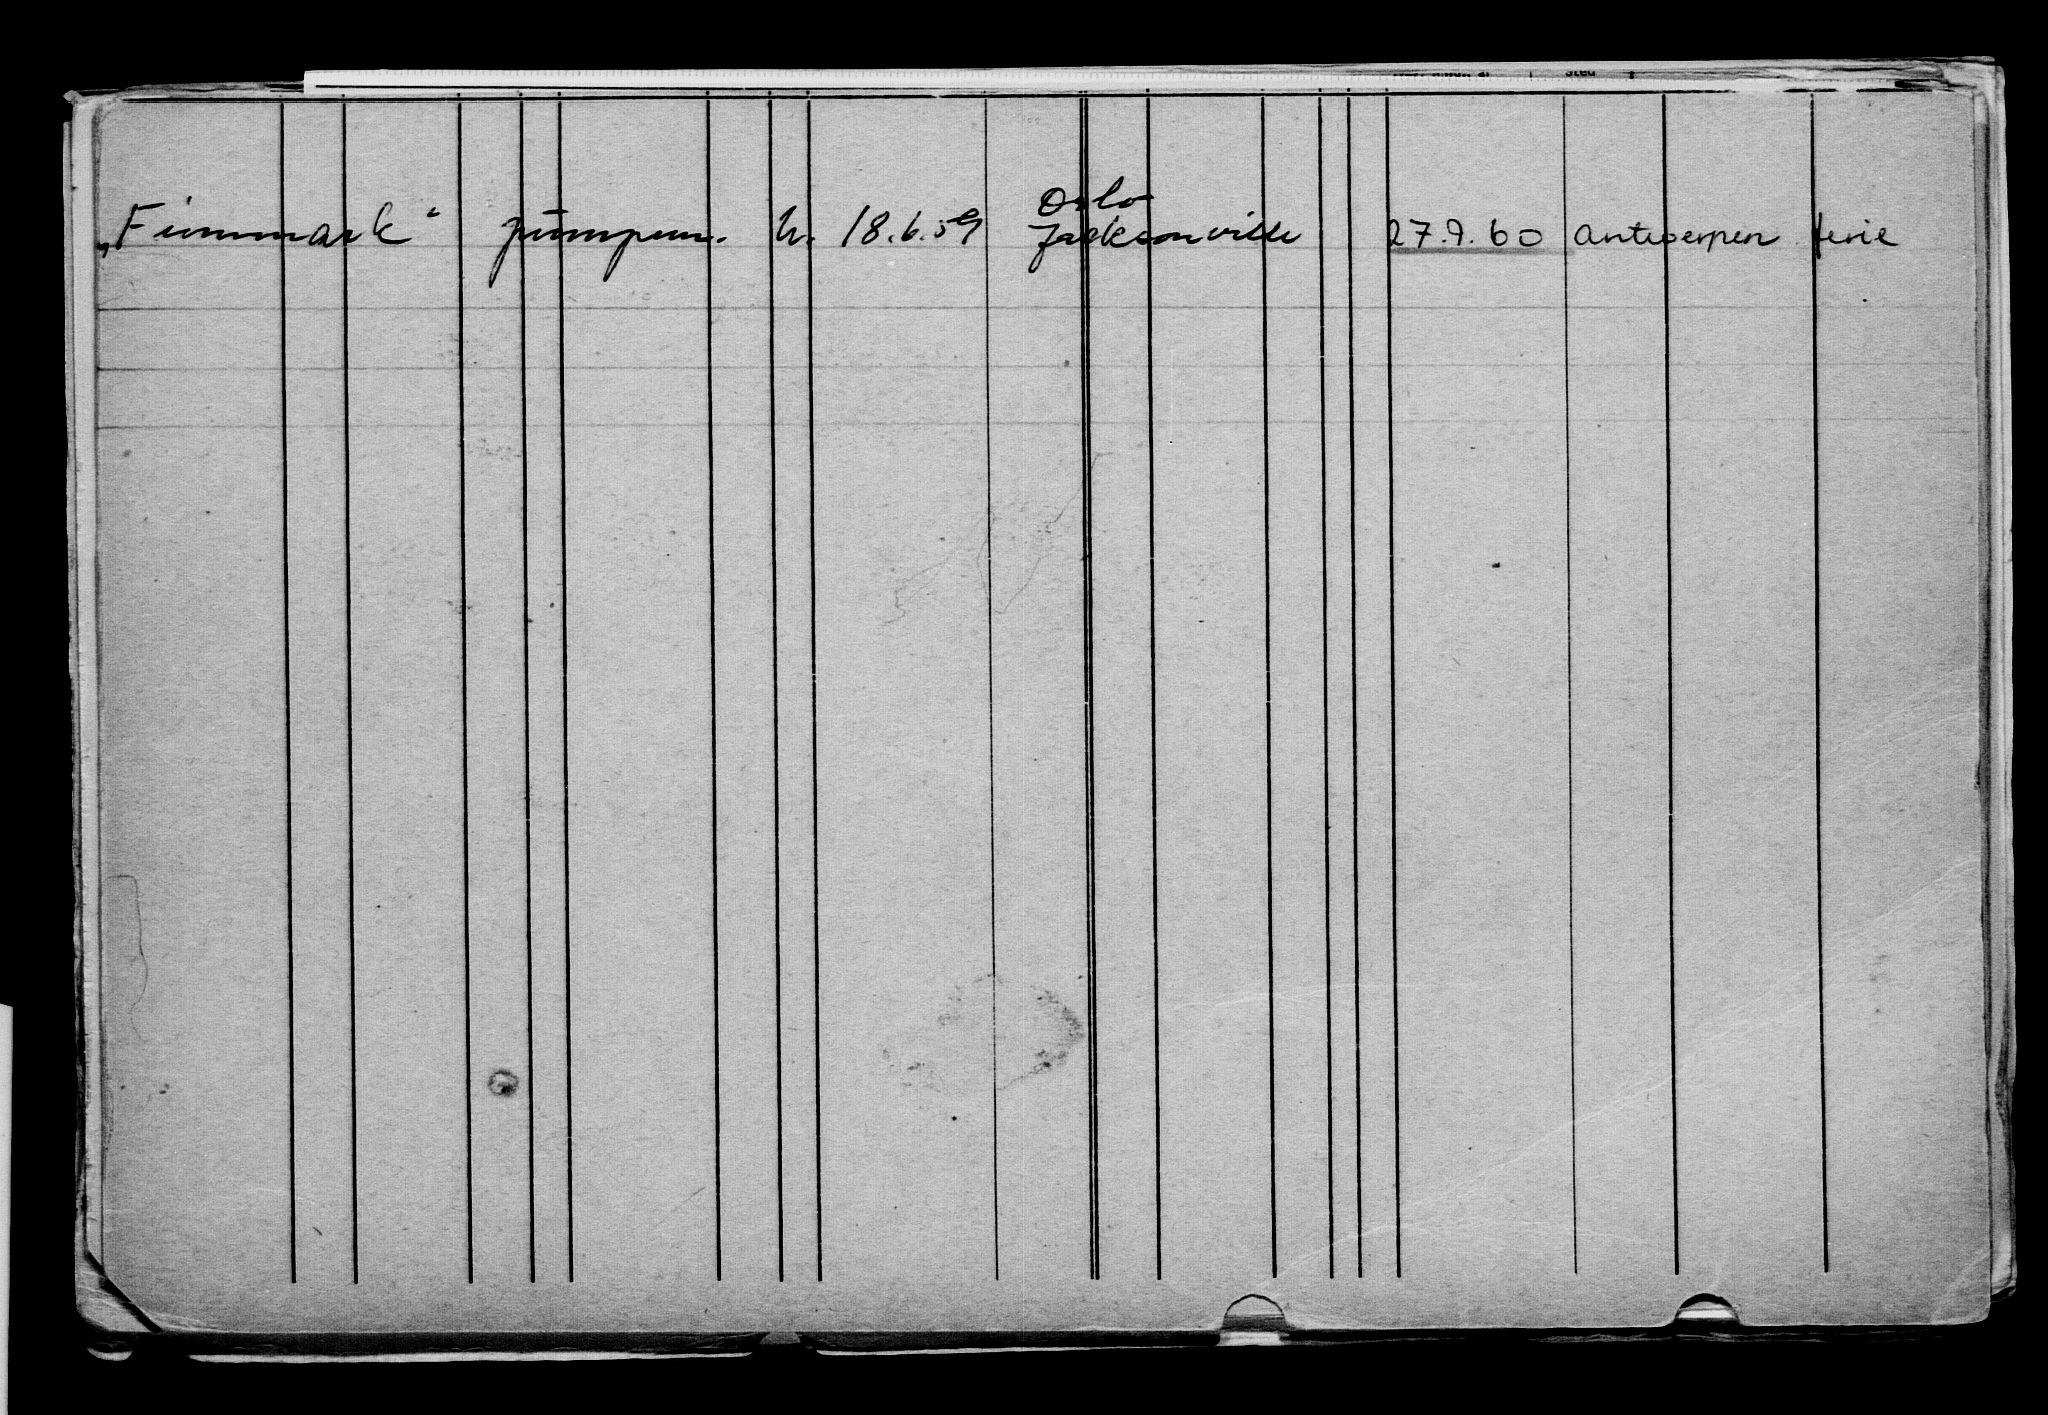 sted
Oslo
„Finnmark“ pumpem. h. 18.6.59 Jacksonville 27.9.60 Antwerpen ferie